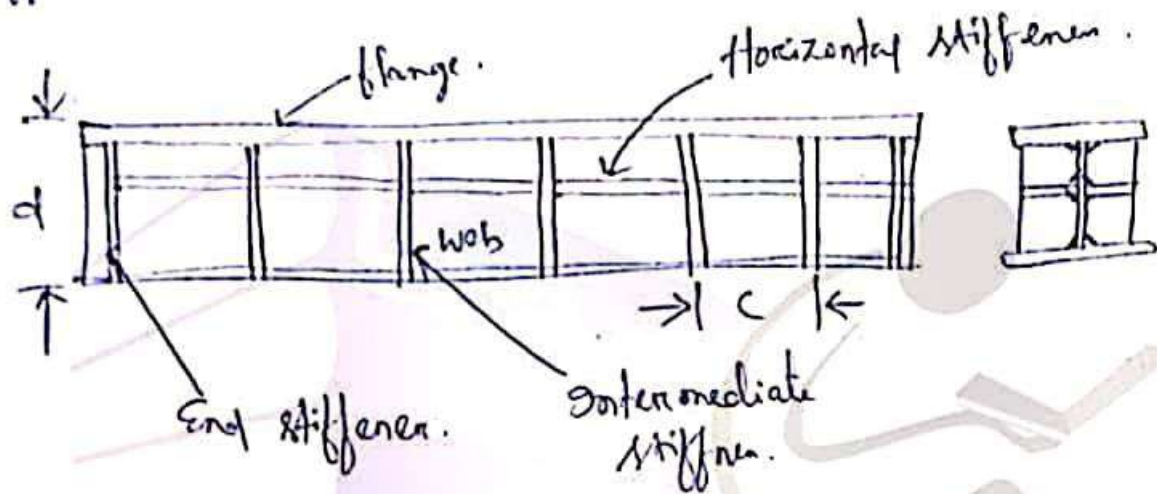 flange.
Horizontal stiffener.
d
web
C
End stiffener.
Intermediate
stiffner.